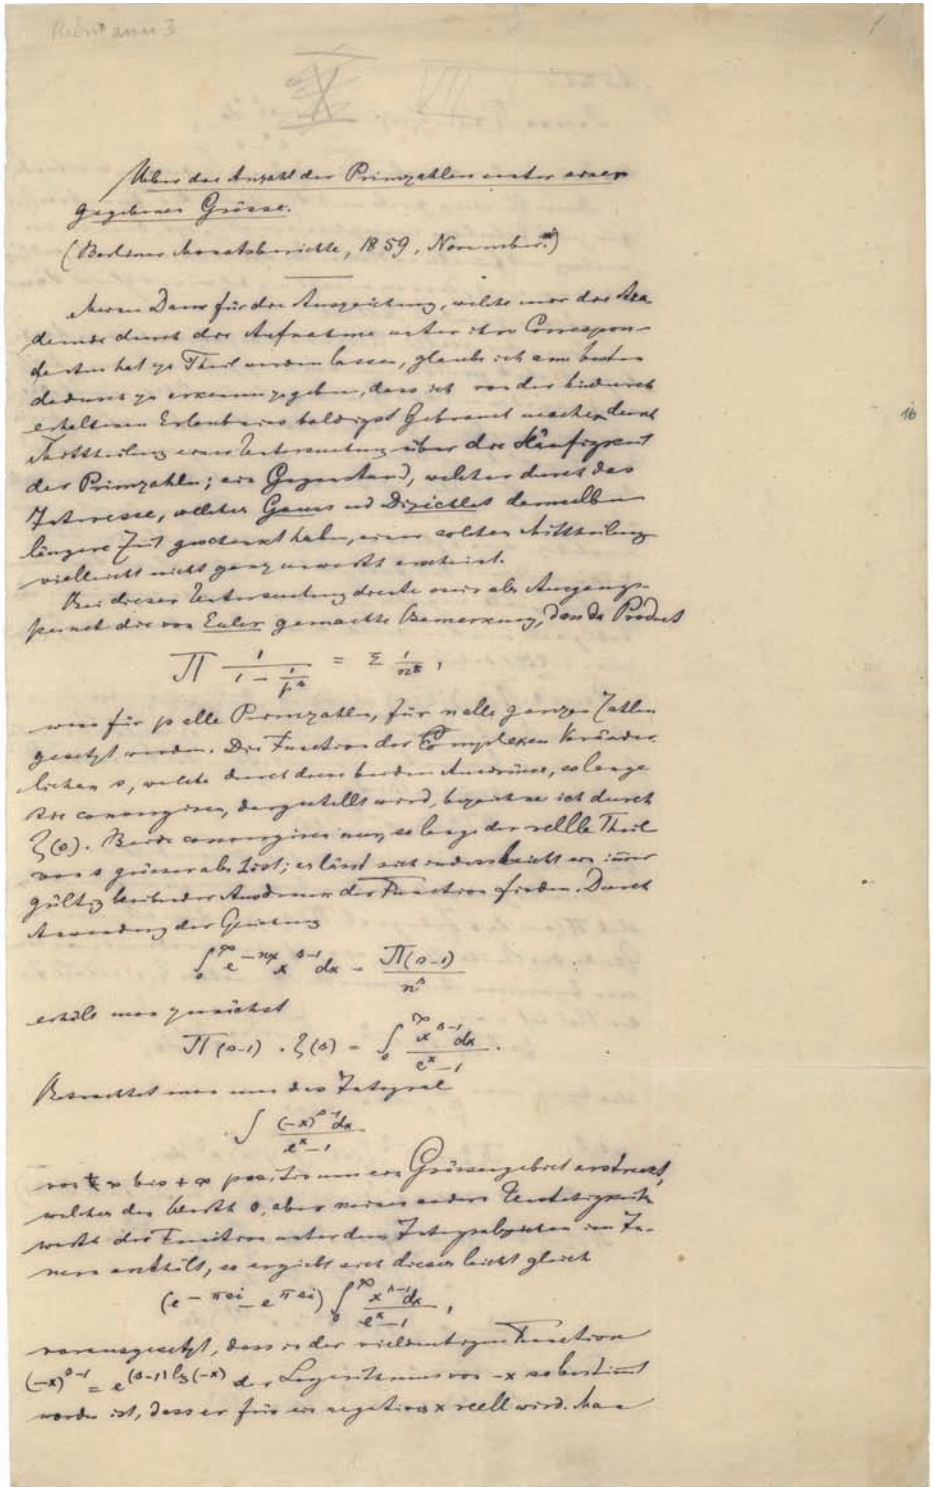 Riemann 3
1
Ueber die Anzahl der Primzahlen unter einer
gegebenen Grösse.
(Berliner Monatsberichte, 1859, November.)
Meinen Dank für die Auszeichnung, welche mir die Aka
demie durch die Aufnahme unter ihre Correspon-
denten hat zu Theil werden lassen, glaube ich am besten
dadurch zu erkennen zu geben, dass ich von der hiedurch
erhaltenen Erlaubniss baldigst Gebrauch mache durch
Mittheilung einer Untersuchung über die Häufigkeit
16
der Primzahlen; ein Gegenstand, welcher durch das
Interesse, welches Gauss und Dirichlet demselben
längere Zeit geschenkt haben, einer solchen Mittheilung
vielleicht nicht ganz unwerth erscheint.
Bei dieser Untersuchung diente mir als Ausgangs-
punct die von Euler gemachte Bemerkung, dass das Product
∏ 1/(1 − 1/p^s) = Σ 1/n^s,
wenn für p alle Primzahlen, für n alle ganzen Zahlen
gesetzt werden. Die Function der Complexen Veränder-
lichen s, welche durch diese beiden Ausdrücke, so lange
sie convergiren, dargestellt wird, bezeichne ich durch
ζ(s). Beide convergiren nur, so lange der reelle Theil
von s grösser als 1 ist; es lässt sich indess leicht ein immer
gültig bleibender Ausdruck der Function finden. Durch
Anwendung der Gleichung
∫_0^∞ e^{−nx} x^{s−1} dx = Π(s−1)/n^s
erhält man zunächst
Π(s−1) . ζ(s) = ∫_0^∞ x^{s−1}dx/(e^x−1).
Betrachtet man nun das Integral
∫ (−x)^{s−1}dx/(e^x−1)
von + ∞ bis + ∞ positiv um ein Grössengebiet erstreckt,
welches den Werth 0, aber keinen andern Unstetigkeits
werth der Function unter dem Integralzeichen im In-
nern enthält, so ergiebt sich dieses leicht gleich
(e^{−πsi} − e^{πsi}) ∫_0^∞ x^{s−1}dx/(e^x−1),
vorausgesetzt, dass in der vieldeutigen Function
(−x)^{s−1} = e^{(s−1) lg(−x)} der Logarithmus von −x so bestimmt
worden ist, dass er für ein negatives x reell wird. Man